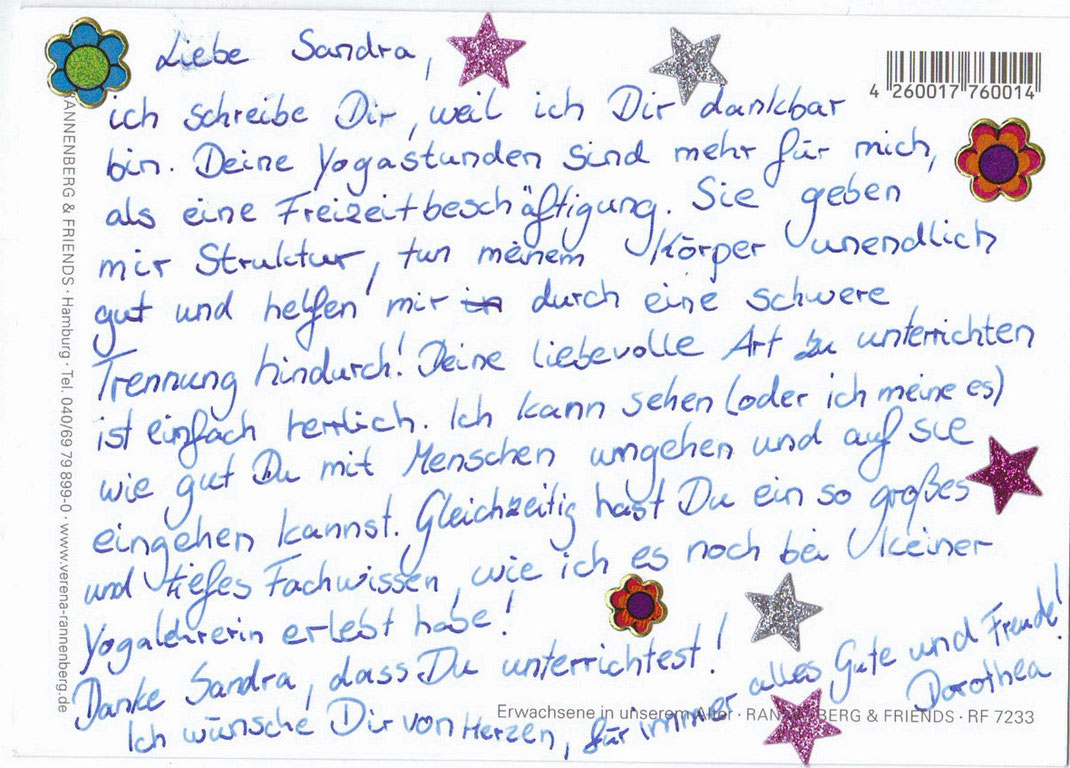 Liebe Sandra,
ich schreibe Dir, weil ich Dir dankbar
bin. Deine Yogastunden sind mehr für mich,
als eine Freizeitbeschäftigung. Sie geben
mir Struktur, tun meinem Körper unendlich
gut und helfen mir in durch eine schwere
Trennung hindurch! Deine liebevolle Art zu unterrichten
ist einfach herrlich. Ich kann sehen (oder ich meine es)
wie gut Du mit Menschen umgehen und auf sie
eingehen kannst. Gleichzeitig hast Du ein so großes
und tiefes Fachwissen, wie ich es noch bei keiner
Yogalehrerin erlebt habe!
Danke Sandra, dass Du unterrichtest!
Ich wünsche Dir von Herzen, für immer alles Gute und Freude!
Dorothea
4 260017 760014
RANNENBERG & FRIENDS · Hamburg · Tel. 040/69 79 899-0 · www.verena-rannenberg.de
Erwachsene in unserem Alter · RANNENBERG & FRIENDS · RF 7233